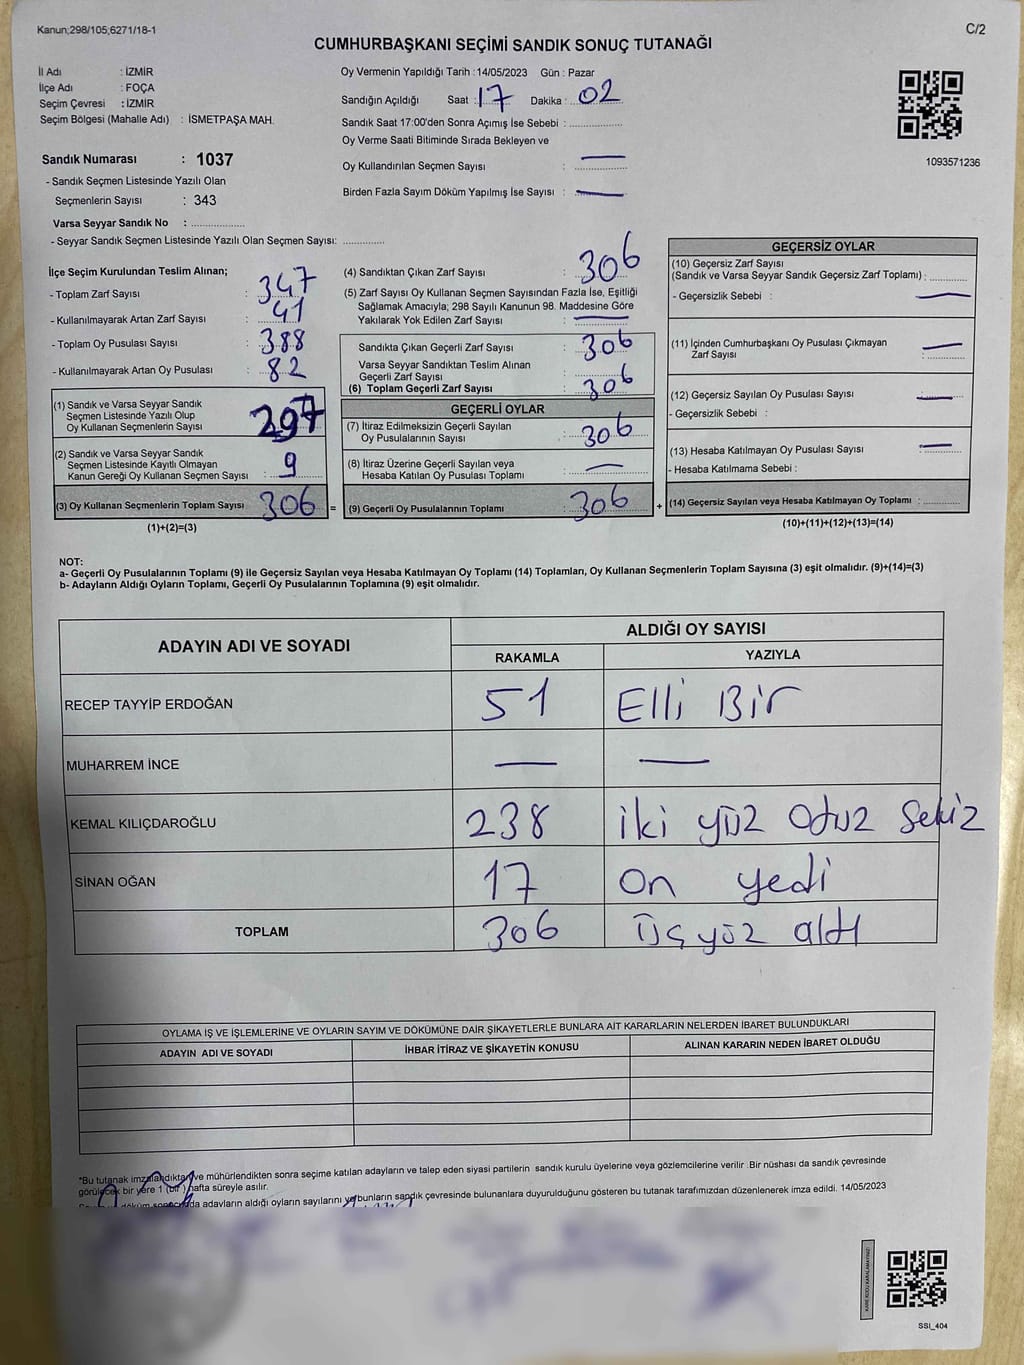 Kanun;298/105;6271/18-1
C/2
CUMHURBAŞKANI SEÇİMİ SANDIK SONUÇ TUTANAĞI
İl Adı : İZMİR
İlçe Adı : FOÇA
Seçim Çevresi : İZMİR
Seçim Bölgesi (Mahalle Adı) : İSMETPAŞA MAH.
Sandık Numarası : 1037
- Sandık Seçmen Listesinde Yazılı Olan
Seçmenlerin Sayısı : 343
Varsa Seyyar Sandık No : ..................
- Seyyar Sandık Seçmen Listesinde Yazılı Olan Seçmen Sayısı: ..............
Oy Vermenin Yapıldığı Tarih : 14/05/2023 Gün : Pazar
Sandığın Açıldığı Saat : 17 Dakika : 02
Sandık Saat 17:00'den Sonra Açımış İse Sebebi : ..................
Oy Verme Saati Bitiminde Sırada Bekleyen ve
Oy Kullandırılan Seçmen Sayısı : —
Birden Fazla Sayım Döküm Yapılmış İse Sayısı : —
1093571236
İlçe Seçim Kurulundan Teslim Alınan;
- Toplam Zarf Sayısı : 347
- Kullanılmayarak Artan Zarf Sayısı : 41
- Toplam Oy Pusulası Sayısı : 388
- Kullanılmayarak Artan Oy Pusulası : 82
(1) Sandık ve Varsa Seyyar Sandık
Seçmen Listesinde Yazılı Olup
Oy Kullanan Seçmenlerin Sayısı 297
(2) Sandık ve Varsa Seyyar Sandık
Seçmen Listesinde Kayıtlı Olmayan
Kanun Gereği Oy Kullanan Seçmen Sayısı : 9
(3) Oy Kullanan Seçmenlerin Toplam Sayısı 306 =
(1)+(2)=(3)
(4) Sandıktan Çıkan Zarf Sayısı : 306
(5) Zarf Sayısı Oy Kullanan Seçmen Sayısından Fazla İse, Eşitliği
Sağlamak Amacıyla; 298 Sayılı Kanunun 98. Maddesine Göre
Yakılarak Yok Edilen Zarf Sayısı : —
Sandıkta Çıkan Geçerli Zarf Sayısı : 306
Varsa Seyyar Sandıktan Teslim Alınan
Geçerli Zarf Sayısı :
(6) Toplam Geçerli Zarf Sayısı : 306
GEÇERLİ OYLAR
(7) İtiraz Edilmeksizin Geçerli Sayılan
Oy Pusulalarının Sayısı : 306
(8) İtiraz Üzerine Geçerli Sayılan veya
Hesaba Katılan Oy Pusulası Toplamı : —
(9) Geçerli Oy Pusulalarının Toplamı : 306 +
GEÇERSİZ OYLAR
(10) Geçersiz Zarf Sayısı
(Sandık ve Varsa Seyyar Sandık Geçersiz Zarf Toplamı) : ............
- Geçersizlik Sebebi : —
(11) İçinden Cumhurbaşkanı Oy Pusulası Çıkmayan
Zarf Sayısı : —
(12) Geçersiz Sayılan Oy Pusulası Sayısı : —
- Geçersizlik Sebebi :
(13) Hesaba Katılmayan Oy Pusulası Sayısı : —
- Hesaba Katılmama Sebebi :
(14) Geçersiz Sayılan veya Hesaba Katılmayan Oy Toplamı : ............
(10)+(11)+(12)+(13)=(14)
NOT:
a- Geçerli Oy Pusulalarının Toplamı (9) ile Geçersiz Sayılan veya Hesaba Katılmayan Oy Toplamı (14) Toplamları, Oy Kullanan Seçmenlerin Toplam Sayısına (3) eşit olmalıdır. (9)+(14)=(3)
b- Adayların Aldığı Oyların Toplamı, Geçerli Oy Pusulalarının Toplamına (9) eşit olmalıdır.
ADAYIN ADI VE SOYADI ALDIĞI OY SAYISI
RAKAMLA YAZIYLA
RECEP TAYYİP ERDOĞAN 51 Elli Bir
MUHARREM İNCE — —
KEMAL KILIÇDAROĞLU 238 iki yüz otuz sekiz
SİNAN OĞAN 17 On yedi
TOPLAM 306 Üç yüz altı
OYLAMA İŞ VE İŞLEMLERİNE VE OYLARIN SAYIM VE DÖKÜMÜNE DAİR ŞİKAYETLERLE BUNLARA AİT KARARLARIN NELERDEN İBARET BULUNDUKLARI
ADAYIN ADI VE SOYADI İHBAR İTİRAZ VE ŞİKAYETİN KONUSU ALINAN KARARIN NEDEN İBARET OLDUĞU
*Bu tutanak imzalandıktan ve mühürlendikten sonra seçime katılan adayların ve talep eden siyasi partilerin sandık kurulu üyelerine veya gözlemcilerine verilir .Bir nüshası da sandık çevresinde
görülecek bir yere 1 (bir ) hafta süreyle asılır.
döküm sonucunda adayların aldığı oyların sayılarını ve bunların sandık çevresinde bulunanlara duyurulduğunu gösteren bu tutanak tarafımızdan düzenlenerek imza edildi. 14/05/2023
SSI_404